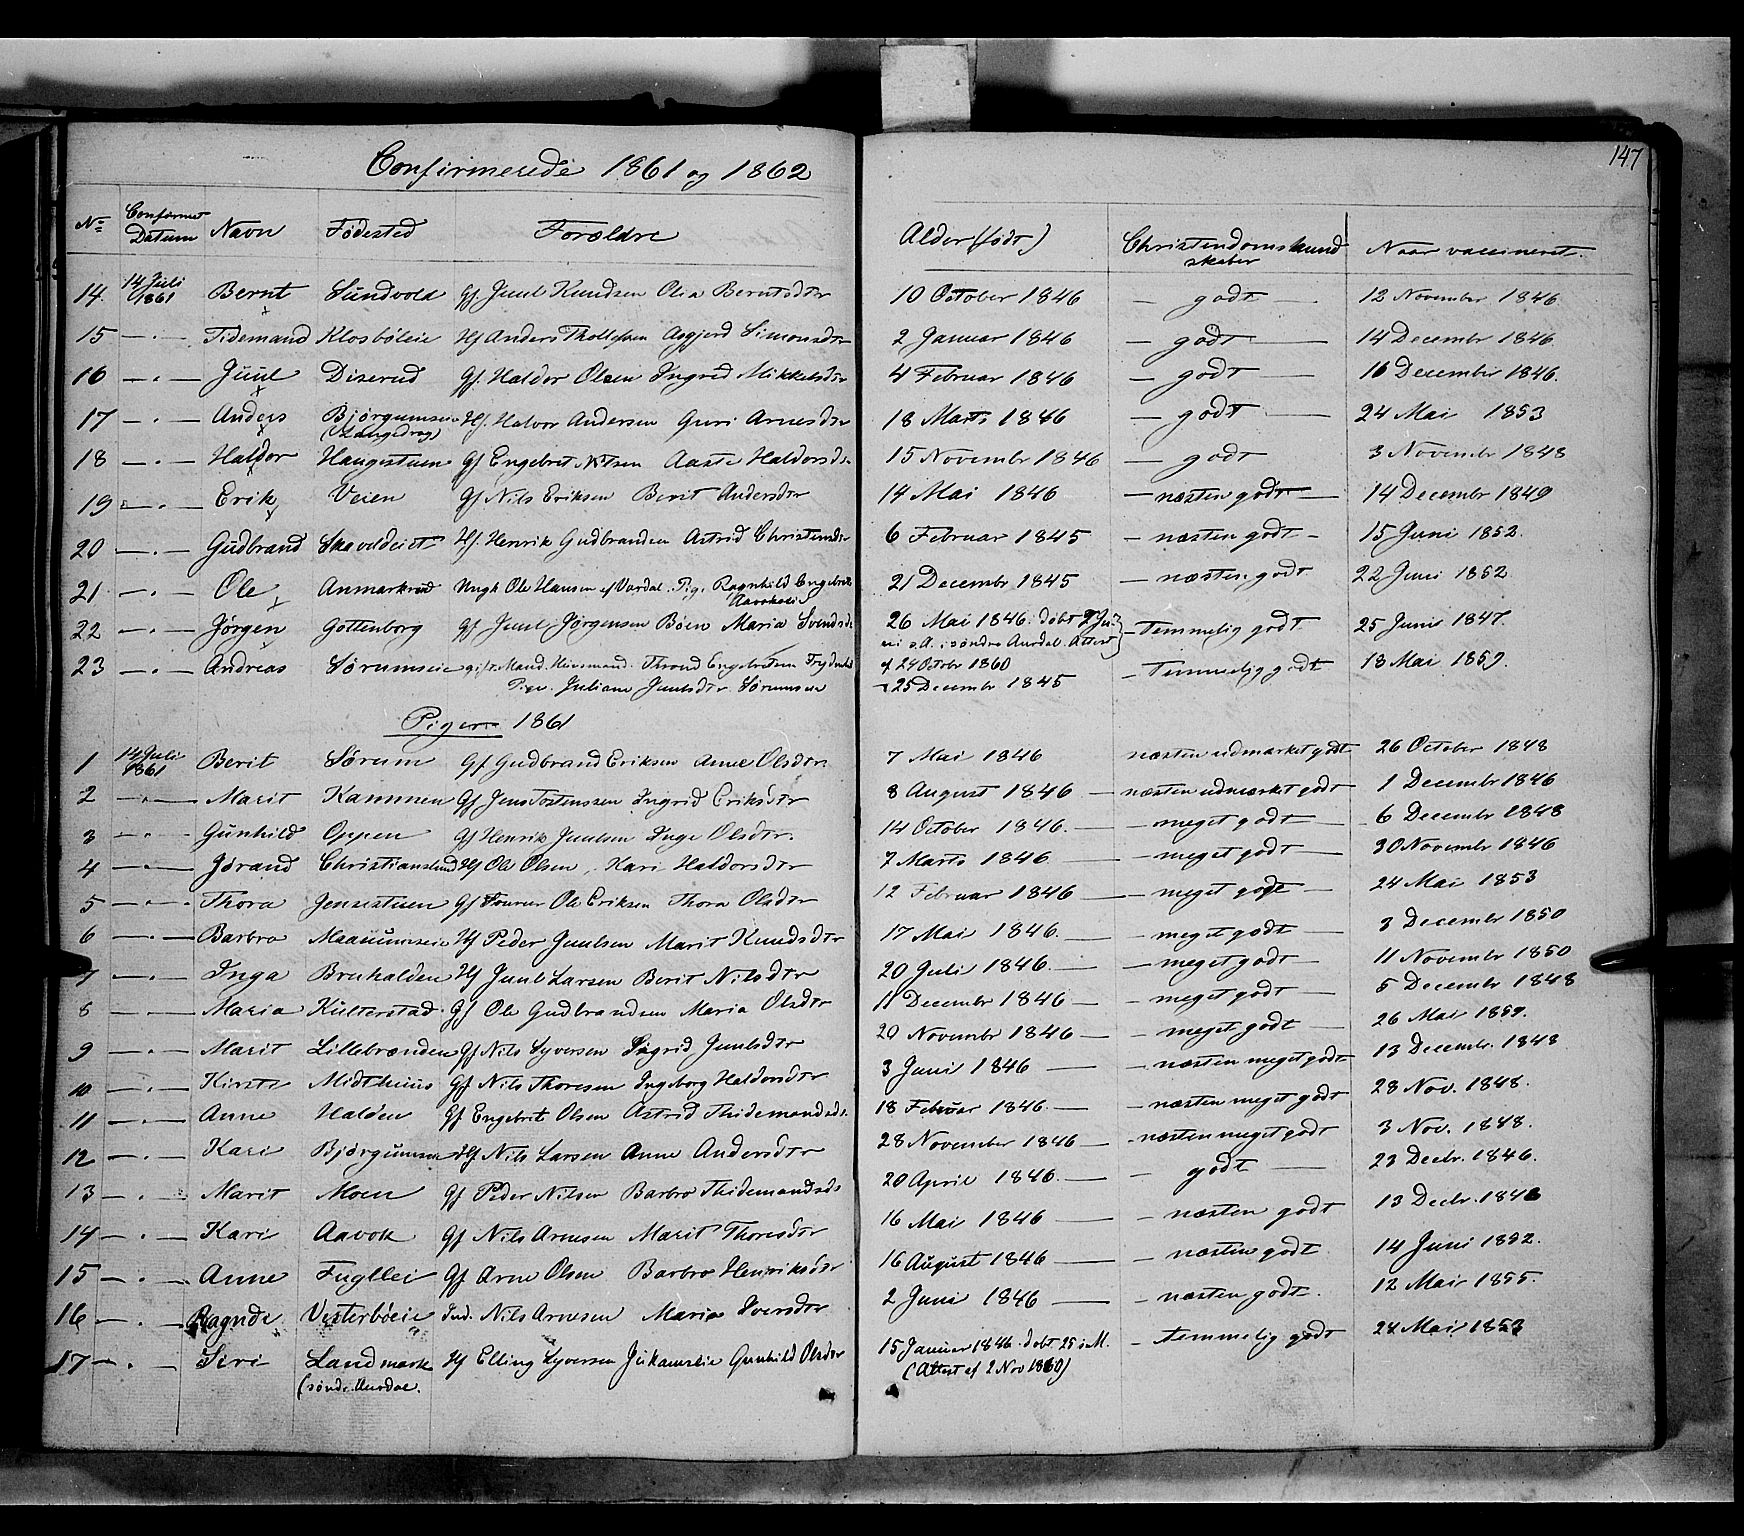 147
Confirmerede 1861 og 1862
No Confirmet Datum Navn Fødested Forældre Alder (født) Christendomskundskaber Naar vaccineret.
14 14 Juli 1861 Bernt Sundvold Gf Juul Knudsen Olia Berntsdtr 10 October 1846 — godt — 12 November 1846
15 — " — Tidemand Klosbøleie Hf Anders Thollefsen Asgjerd Simonsdtr 2 Januar 1846 — godt — 14 Decembr 1846.
16 — " — Juul Diserud Gf. Haldor Olsen Ingrid Mikkelsdtr 4 Februar 1846 — godt — 16 December 1846.
17 — " — Anders Bjørgumseie Hf. Halvor Andersen Guri Arnesdtr 18 Marts 1846 — godt — 24 Mai 1853
18 — " — Haldor Haugestuen Gf Engebret Nilsen Aaste Haldorsdr 15 Novembr 1846 — godt 3 Novembr 1848
19 — " — Erik Veien Gf Nils Eriksen Berit Andersdtr 14 Mai 1846 — næsten godt — 14 Decembr 1849
20 — " — Gudbrand Skavoldeiet Hf. Henrik Gudbrandsen Astrid Christensdr 6 Februar 1845 — næsten godt — 15 Juni 1852.
21 — " — Ole Anmarkrud Ungk Ole Hansen af Vardal. Pig. Ragnhild Engebrets Aavokeie 21 Decembr 1845 — næsten godt 22 Juni 1852
22 — " — Jørgen Gottenborg Gf Juul Jørgensen Bøen Maria Svendsd. 26 Mai 1846. døbt 7 Juni s.A. i søndre Aurdal Attest af 24 Octbr 1860 — Temmelig godt 25 Juni 1847.
23 — " — Andreas Sørumseie gift Mand. Huusmand. Thrond Engebretsen Pige. Juliane Juulsdtr Sørumseie 25 Decembr 1845 — Temmelig godt 18 Mai 1859.
Piger 1861
1 14 Juli 1861 Berit Sørum Gf Gudbrand Eriksen Anne Olsdtr. 7 Mai 1846 næsten udmærket godt 26 October 1848
2 — " — Marit Kammen Gf Jens Tostenssen Ingrid Eriksdtr 8 August 1846 — næsten udmærket godt 1 Decembr 1846
3 — " — Gunhild Oppen Gf Henrik Juulsen Inge Olsdtr. 14 October 1846. — meget godt — 6 Decembr 1848
4 — " — Jørand Christianslund Hf Ole Olsen, Kari Haldorsdtr 7 Marts 1846 — meget godt — 30 Novembr 1846
5 — " — Thora Jensestuen Gf Ole Eriksen Thora Olsdtr 12 Februar 1846 — meget godt — 24 Mai 1853
6 — " — Barbro Maaumseie Hf Peder Juulsen Marit Knudsdtr 17 Mai 1846. — meget godt — 3 Decembr 1850
7 — " — Inga Bruhalden Hf Juul Larsen Berit Nilsdtr 20 Juli 1846 — meget godt — 11 November 1850
8 — " — Maria Kulterstad. Gf Ole Gudbrandsen Maria Olsdtr 11 Decembr 1846 — meget godt — 5 Decembr 1848
9 — " — Marit Lillebrænden Gf Nils Syversen Sigrid Juulsdtr 20 Novembr 1846 — meget godt — 26 Mai 1859.
10 — " — Kirsti Midthuus Gf Nils Thoresen Ingeborg Haldorsdtr 3 Juni 1846 — næsten meget godt 13 Decembr. 1848
11 — " — Anne Halden Gf Engebret Olsen Astrid Thidemandsdr 18 Februar 1846. — næsten meget godt 28 Nov. 1848.
12 — " — Kari Bjørgumseie Hf Nils Larsen Anne Andersdtr 28 November 1846 — næsten meget godt 3 Nov. 1848.
13 — " — Marit Moen Gf Peder Nilsen Barbro Thidemandsds 20 April 1846. — godt — 23 Decbr. 1846.
14 — " — Kari Aavok Gf Nils Arnesen Marit Thoresdtr 16 Mai 1846 — næsten godt 13 Decbr. 1848
15 — " — Anne Fugllei Gf Arne Olsen Barbro Henriksdtr 16 August 1846 — næsten godt 14 Juni 1852.
16 — " — Ragnde Vesterbøeie Ind. Nils Arnesen Maria Iversdtr 2 Juni 1846 — næsten godt. 12 Mai 1855.
17 — " — Siri Landmark (søndr. Aurdal. Hf Elling Syversen Gunhild Olsdtr 15 Januar 1846. døbt 25 s.M. (Attest af 2 Nov 1860) — temmelig godt 24 Mai 1853